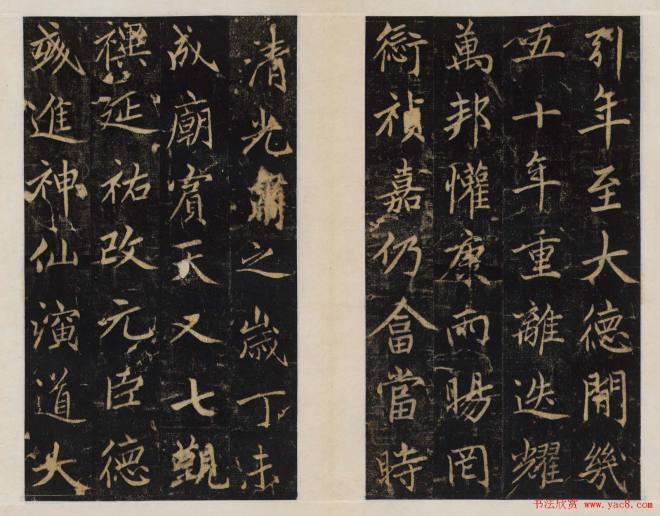 引年至大德開幾
五十年重離迭耀
萬邦懽康雨暘罔
衍禎嘉仍畣當時
清光
之歲丁未
成廟賓天又七觀
禩延祐改元臣德
彧進神仙演道大
书法欣赏 www.yac8.com